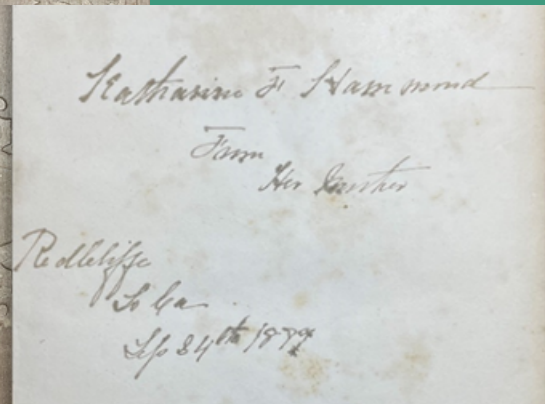 Katharine F Hammond
From
Her Mother
Redcliffe
So Ca
Sep 24th